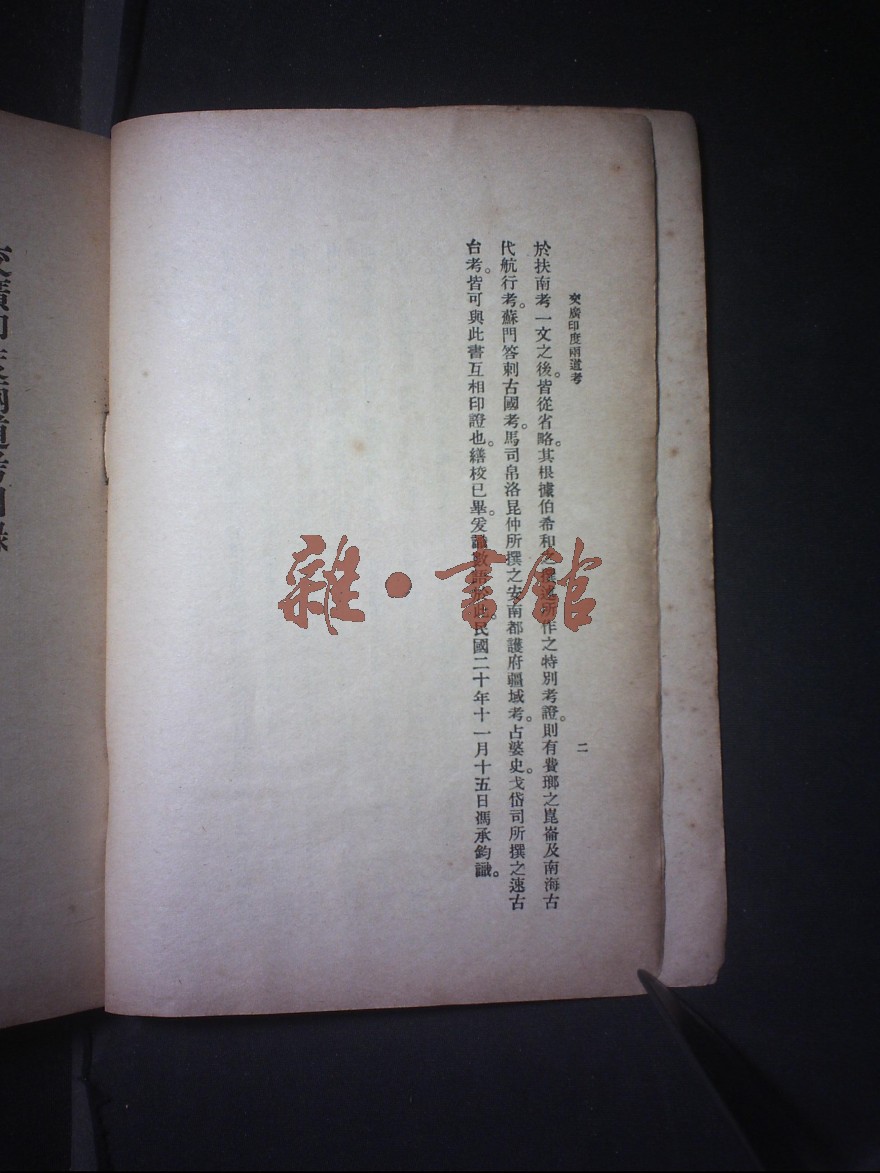 交廣印度兩道考
二
於扶南考一文之後。皆從省略。其根據伯希和之撰述所作之特別考證。則有費瑯之崑崙及南海古
代航行考。蘇門答剌古國考。馬司帛洛昆仲所撰之安南都護府疆域考。占婆史。戈岱司所撰之速古
台考。皆可與此書互相印證也。繕校已畢。爰識數語於此。民國二十年十一月十五日馮承鈞識。
雜·書館